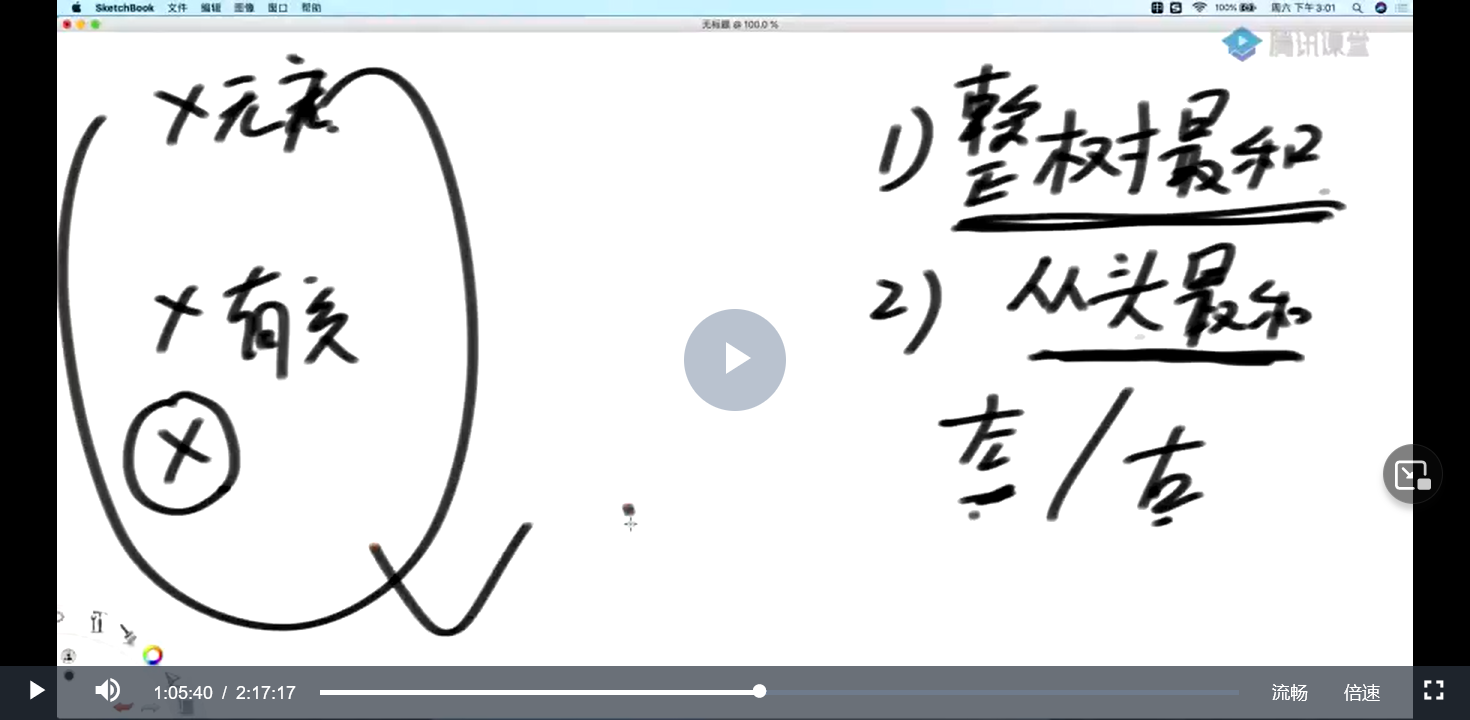 SketchBook 文件 编辑 图像 窗口 帮助 100% 周六 下午3:01
无标题 @ 100.0 %
腾讯课堂
X 无关
1) 整树最和
X 有关
2) 从头最和
X
左 / 右
1:05:40 / 2:17:17 流畅 倍速